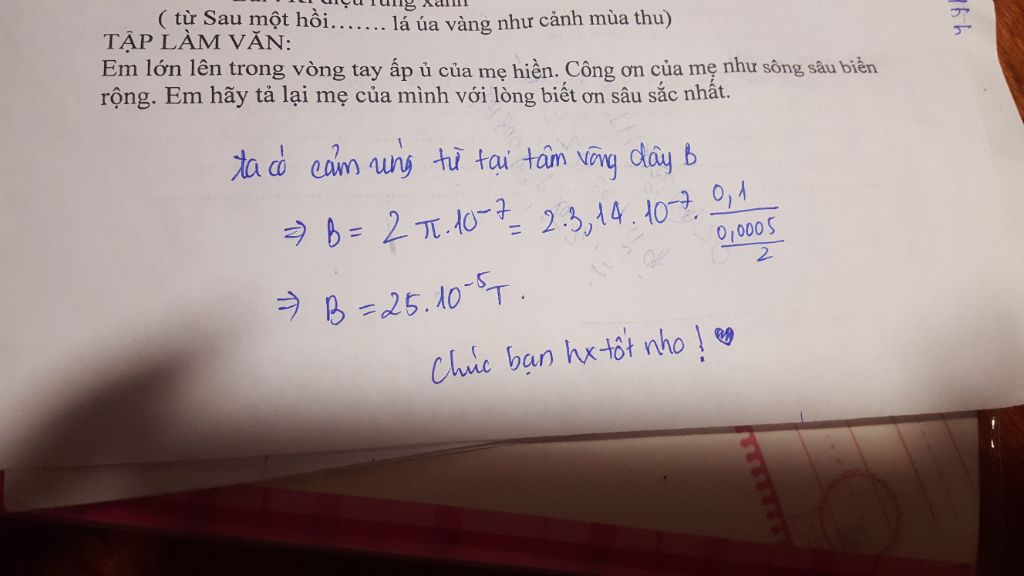 ( từ Sau một hồi........ lá úa vàng như cảnh mùa thu)
TẬP LÀM VĂN:
Em lớn lên trong vòng tay ấp ủ của mẹ hiền. Công ơn của mẹ như sông sâu biển
rộng. Em hãy tả lại mẹ của mình với lòng biết ơn sâu sắc nhất.
ta có cảm ứng từ tại tâm vòng dây B
⇒ B = 2π.10⁻⁷ = 2.3,14.10⁻⁷. 0,1 / (0,0005 / 2)
⇒ B = 25.10⁻⁵T.
Chúc bạn hx tốt nho! ♥